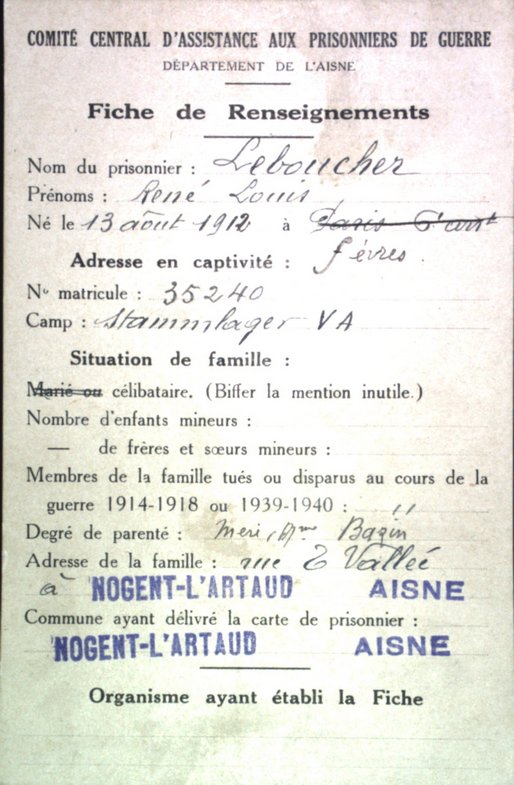 COMITÉ CENTRAL D'ASSISTANCE AUX PRISONNIERS DE GUERRE
DÉPARTEMENT DE L'AISNE
Fiche de Renseignements
Nom du prisonnier : Leboucher
Prénoms : René Louis
Né le 13 août 1912 à Paris
Adresse en captivité : févres.
No matricule : 35240
Camp : Stammlager VA
Situation de famille :
Marié ou célibataire. (Biffer la mention inutile.)
Nombre d'enfants mineurs :
— de frères et sœurs mineurs :
Membres de la famille tués ou disparus au cours de la
guerre 1914-1918 ou 1939-1940 : "
Degré de parenté : mere, Mme Bazin
Adresse de la famille : rue E Vallée
à NOGENT-L'ARTAUD AISNE
Commune ayant délivré la carte de prisonnier :
NOGENT-L'ARTAUD AISNE
Organisme ayant établi la Fiche